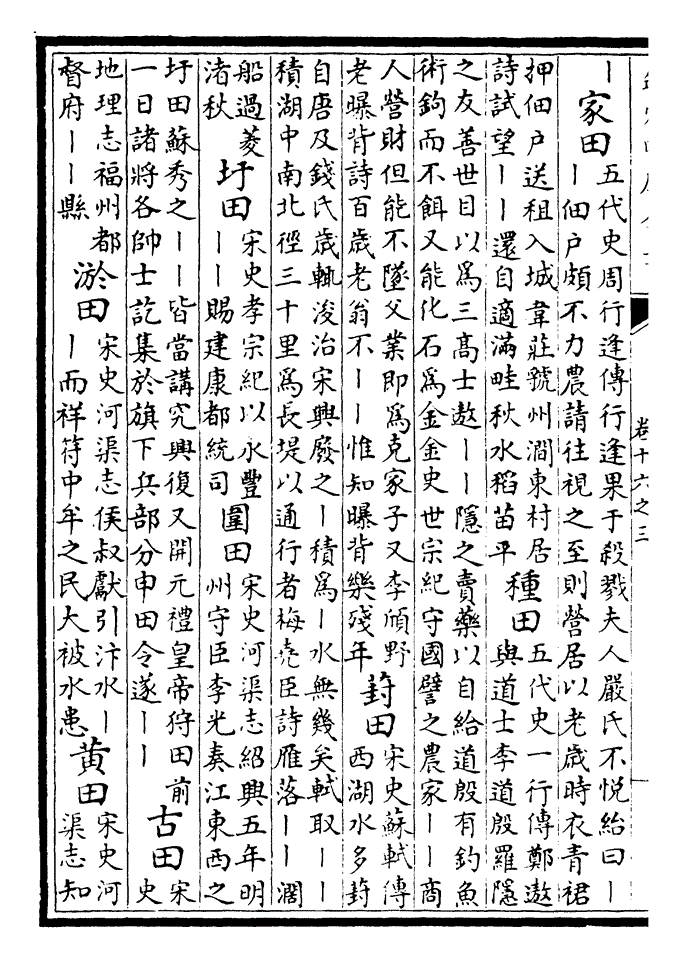 卷十六之三
｜家田
五代史周行逢傳行逢果于殺戮夫人嚴氏不悅紿曰｜
｜佃户頗不力農請往視之至則營居以老歲時衣青裙
押佃户送租入城韋莊虢州澗東村居
詩試望｜｜還自適滿畦秋水稻苗平
種田
五代史一行傳鄭遨
與道士李道殷羅隱
之友善世目以為三髙士遨｜｜隱之賣藥以自給道殷有釣魚
術鉤而不餌又能化石為金金史世宗紀守國譬之農家｜｜商
人營財但能不墜父業即為克家子又李頎野
老曝背詩百歲老翁不｜｜惟知曝背樂殘年
葑田
宋史蘇軾傳
西湖水多葑
自唐及錢氏歲輒浚治宋興廢之｜積為｜水無幾矣軾取｜｜
積湖中南北徑三十里為長堤以通行者梅堯臣詩雁落｜｜濶
船過菱
渚秋
圩田
宋史孝宗紀以水豐
｜｜賜建康都統司
圍田
宋史河渠志紹興五年明
州守臣李光奏江東西之
圩田蘇秀之｜｜皆當講究興復又開元禮皇帝狩田前
一日諸將各帥士訖集於旗下兵部分申田令遂｜｜
古田
宋
史
地理志福州都
督府｜｜縣
淤田
宋史河渠志侯叔獻引汴水｜
｜而祥符中牟之民大被水患
黄田
宋史河
渠志知